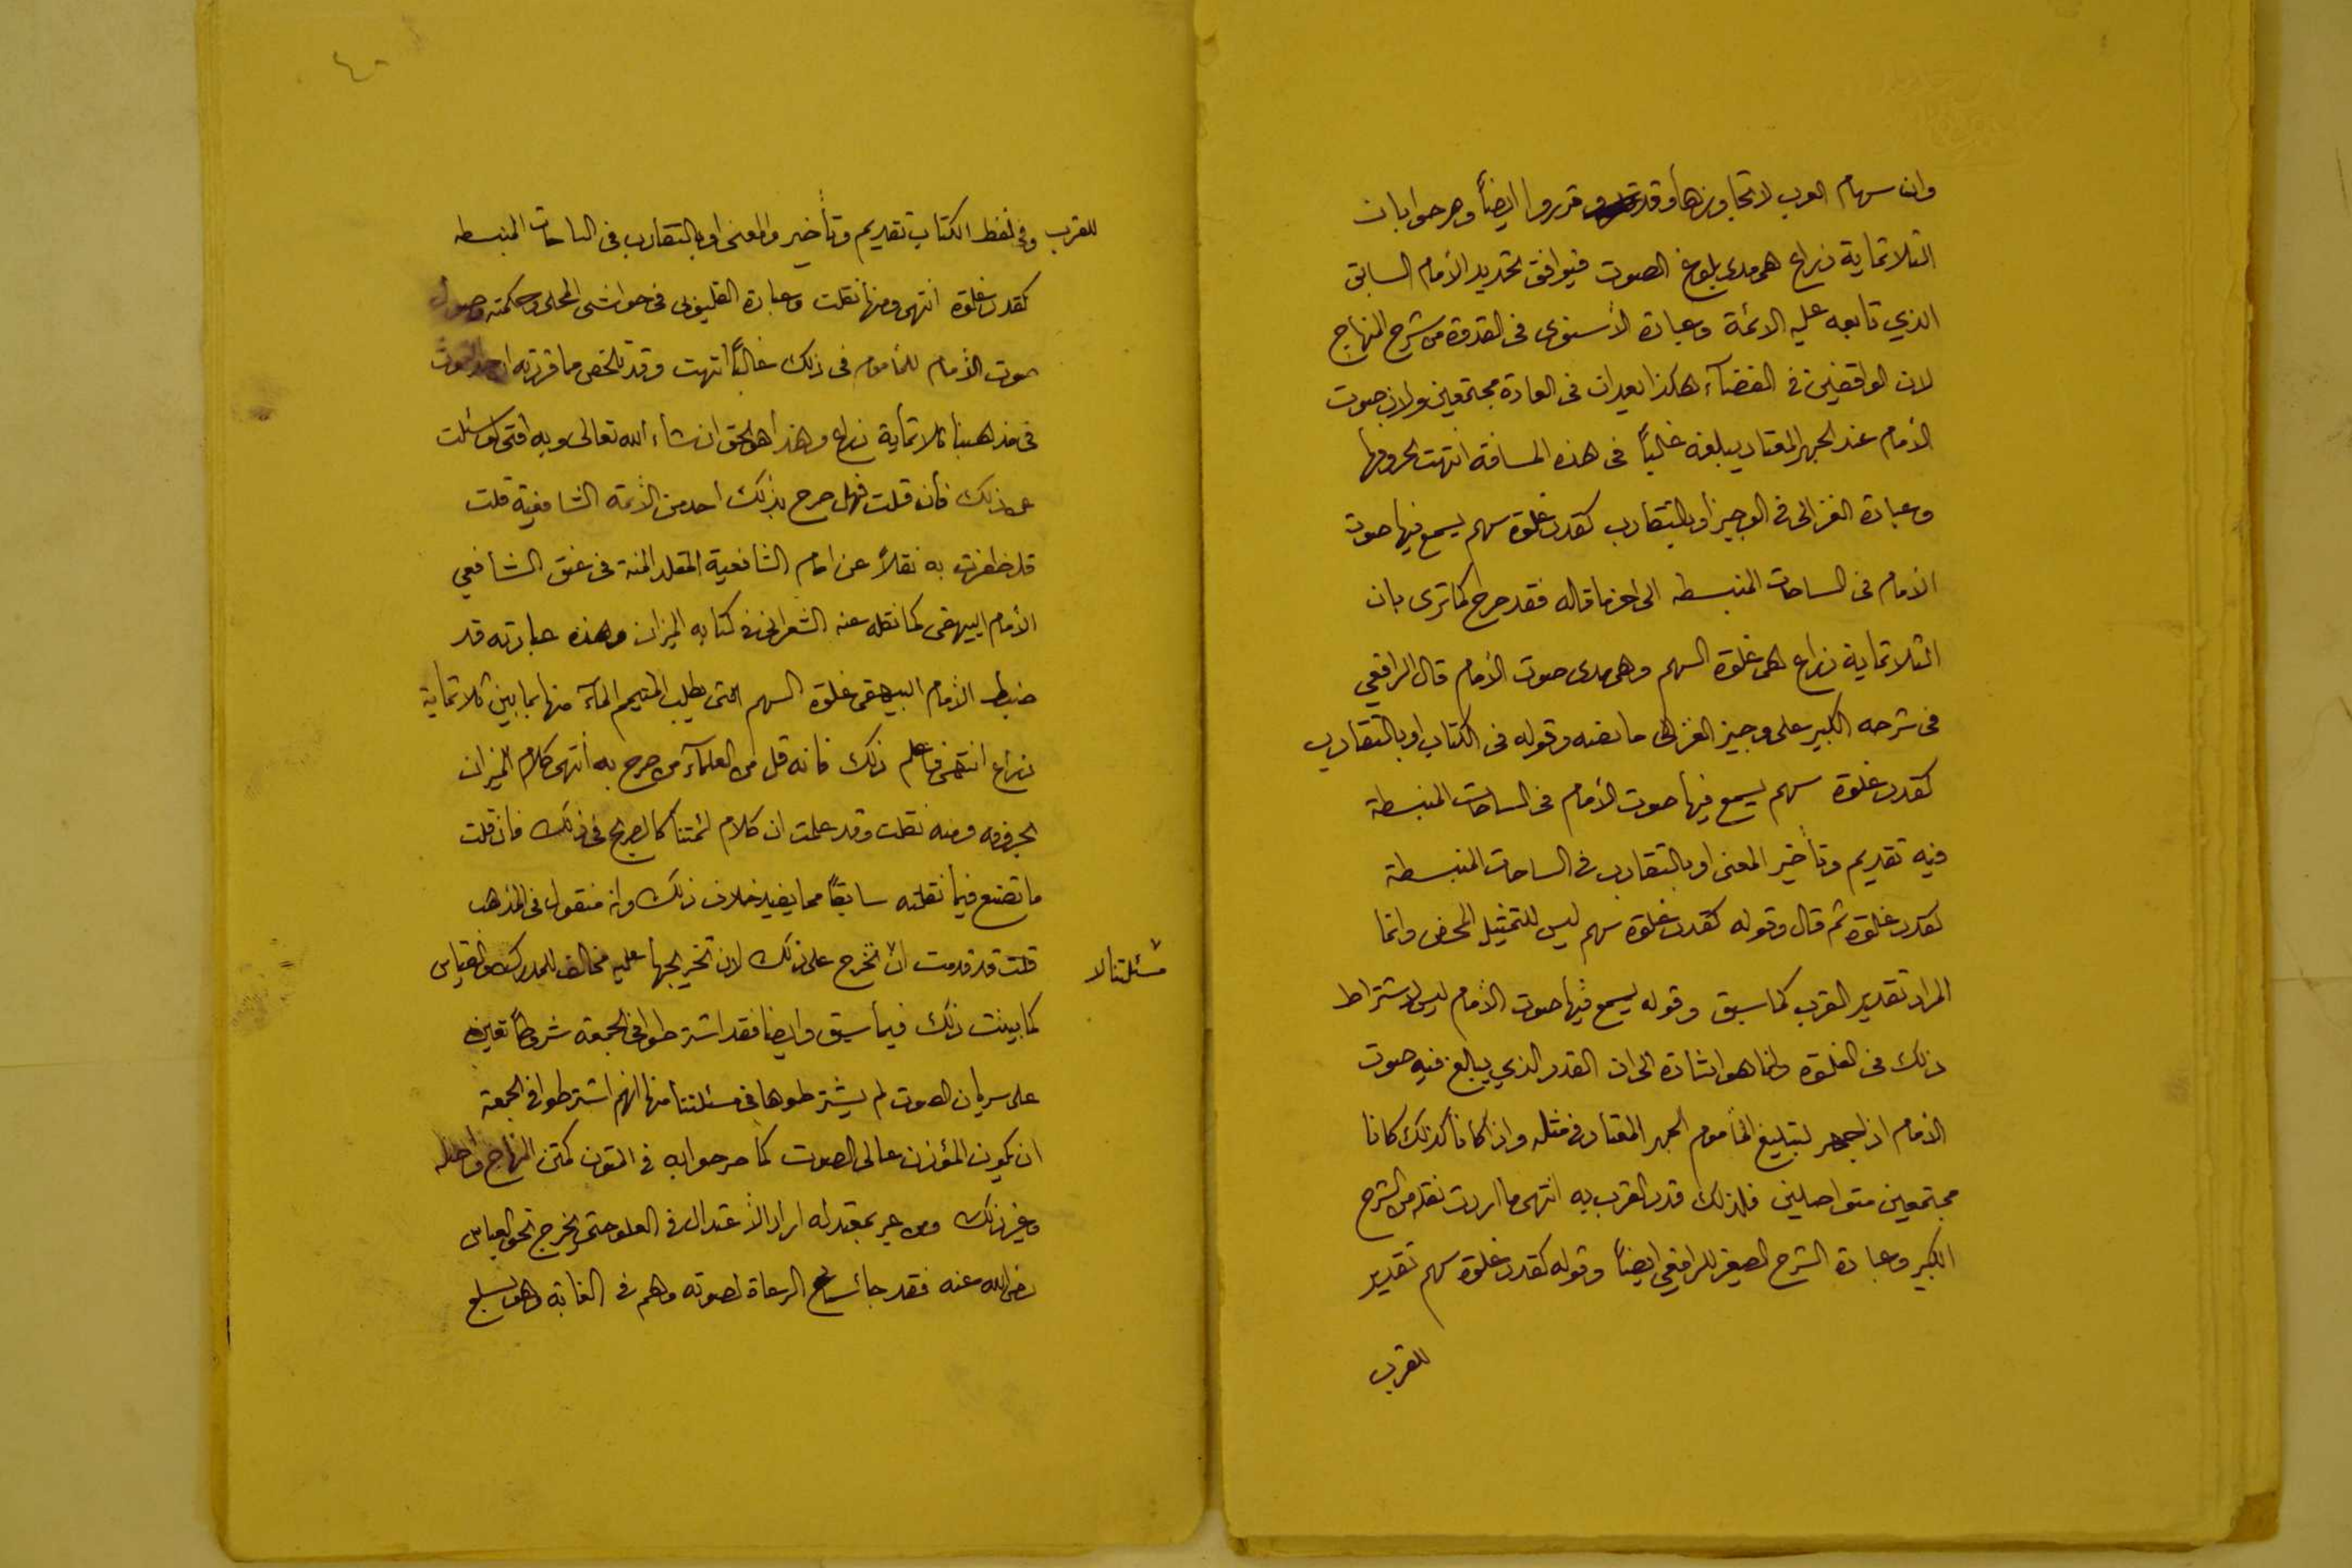 وان سهام العرب لا تجاوزها وقد قرروا ايضاً وصرحوا بان
الثلاثماية ذراع هى مدى بلوغ الصوت فيوافق تحديد الأمام السابق
الذي تابعه عليه الائمة وعبارة الأسنوى فى القدوة من شرح المنهاج
لان الواقفين فى الفضآء هكذا يعدان فى العادة مجتمعين ولان صوت
الأمام عند الجهر المعتاد يبلغه غالباً فى هذه المسافة انتهت بحروفها
وعبارة الغزالى فى الوجيز او بالتقارب كقدر غلوة سهم يسمع فيها صوت
الأمام فى الساحات المنبسطه الى اخر ما قاله فقد صرح كما ترى بان
الثلاثماية ذراع هى غلوة السهم وهى مدى صوت الأمام قال الرافعي
فى شرحه الكبير على وجيز الغزالى ما نصه وقوله فى الكتاب او بالتقارب
كقدر غلوة سهم يسمع فيها صوت الأمام فى الساحات المنبسطة
فيه تقديم وتأخير المعنى او بالتقارب فى الساحات المنبسطة
كقدر غلوة ثم قال وقوله كقدر غلوة سهم ليس للتمثيل المحض وانما
المراد تقدير القرب كما سبق وقوله يسمع فيها صوت الأمام ليس لاشتراط
ذلك فى الغلوة وانما هو اشارة الى ان القدر الذي يبلغ فيه صوت
الأمام اذا جهر لتبليغ المأموم الجهر المعتاد فى مثله واذا كانا كذلك كانا
مجتمعين متواصلين فلذلك قدر القرب به انتهى ما اردت نقله من الشرح
الكبير وعبارة الشرح الصغير للرافعي ايضاً وقوله كقدر غلوة سهم تقدير
للقرب
٤٠
للقرب وفى لفظ الكتاب تقديم وتأخير والمعنى او بالتقارب فى الساحات المنبسطه
كقدر غلوة انتهى ومنها نقلت وعبارة القليوبى فى حواشى المحلى وحكمته وصول
صوت الأمام للمأموم فى ذلك غالباً انتهت وقد تلخص مما قررته ان حد الصوت
فى مذهبنا ثلاثماية ذراع وهذا هو الحق ان شاء الله تعالى وبه افتى لو سئلت
عن ذلك فأن قلت فهل صرح بذلك احد من الأئمة الشافعية قلت
قد ظفرت به نقلاً عن امام الشافعية المقلد المنة فى عنق الشافعي
الأمام البيهقى كما نقله عنه الشعرانى فى كتابه الميزان وهذه عبارته قد
ضبط الأمام البيهقى غلوة السهم التى يطلب المتيمم المآء منها بما بين ثلاثماية
ذراع انتهى فاعلم ذلك فانه قل من العلمآء من صرح به انتهى كلام الميزان
بحروفه ومنه نقلت وقد علمت ان كلام ائمتنا كالصريح فى ذلك فان قلت
ما تصنع فيما نقلته سابقاً مما يفيد خلاف ذلك وانه منقول فى المذهب
قلت قد قدمت ان مسئلتنا لا تخرج على ذلك لان تخريجها عليه مخالف للمدرك والقياس
كما بينت ذلك فيما سبق وايضا فقد اشترطوا فى الجمعة شروطاً تعين
على سريان الصوت لم يشترطوها فى مسئلتنا منها انهم اشترطوا فى الجمعة
ان يكون المؤذن عالى الصوت كما صرحوا به فى المتون كمتن المنهاج واصله
وغير ذلك ومن عبر بمعتدله اراد الأعتدال فى العلو حتى يخرج نحو العباس
رضى الله عنه فقد جا سماع الرعاة لصوته وهم فى الغابة وهو بسلع